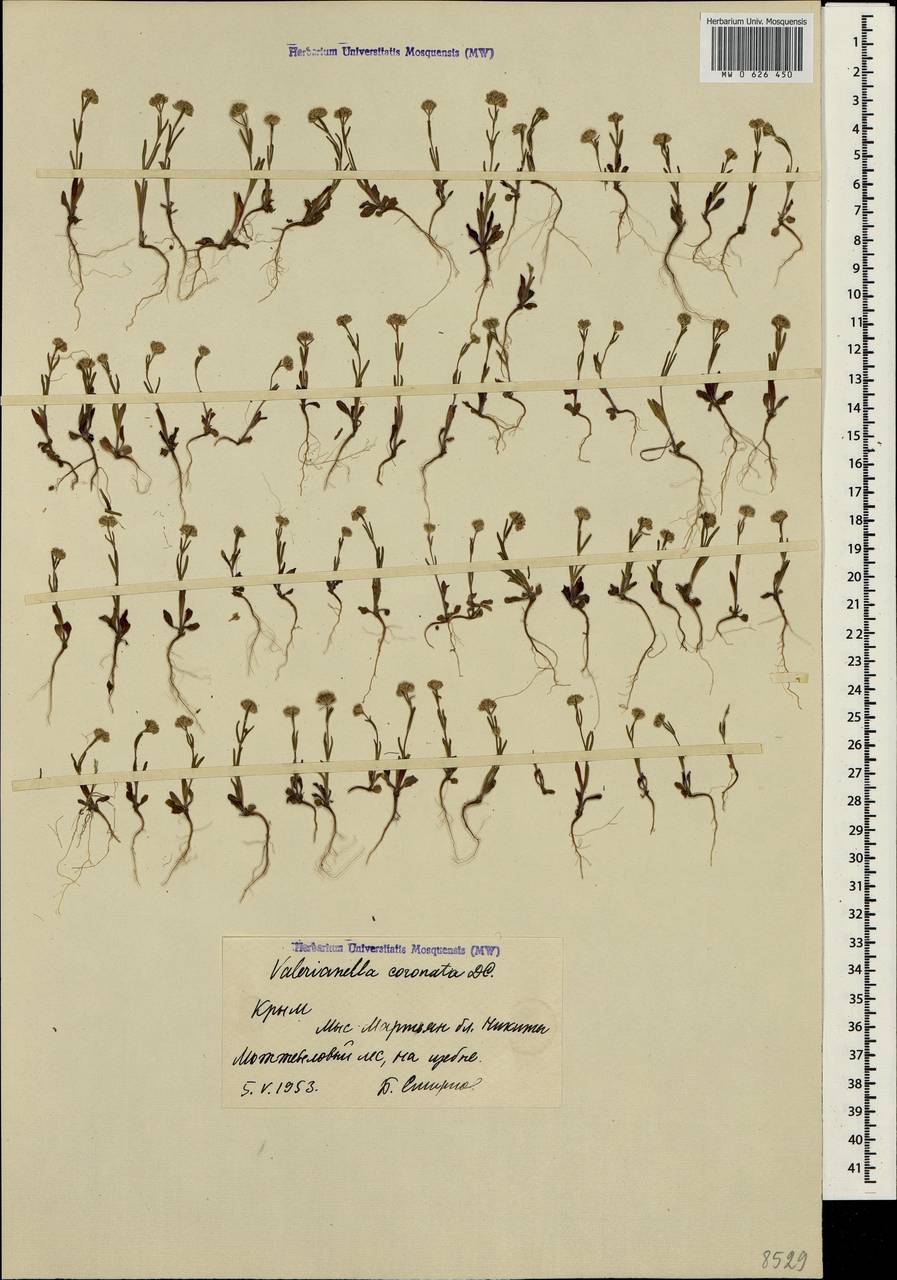 Herbarium Univ. Mosquensis
MW 0 626 450
Herbarium Universitatis Mosquensis (MW)
1
2
3
4
5
6
7
8
9
10
11
12
13
14
15
16
17
18
19
20
21
22
23
24
25
26
27
28
29
30
31
32
33
34
35
36
37
38
39
40
41
Herbarium Universitatis Mosquensis (MW)
Valerianella coronata DC.
Крым
Мыс Мартьян бл. Никиты
лес, на щебне.
5.V.1953. Б. Смирнов
8529